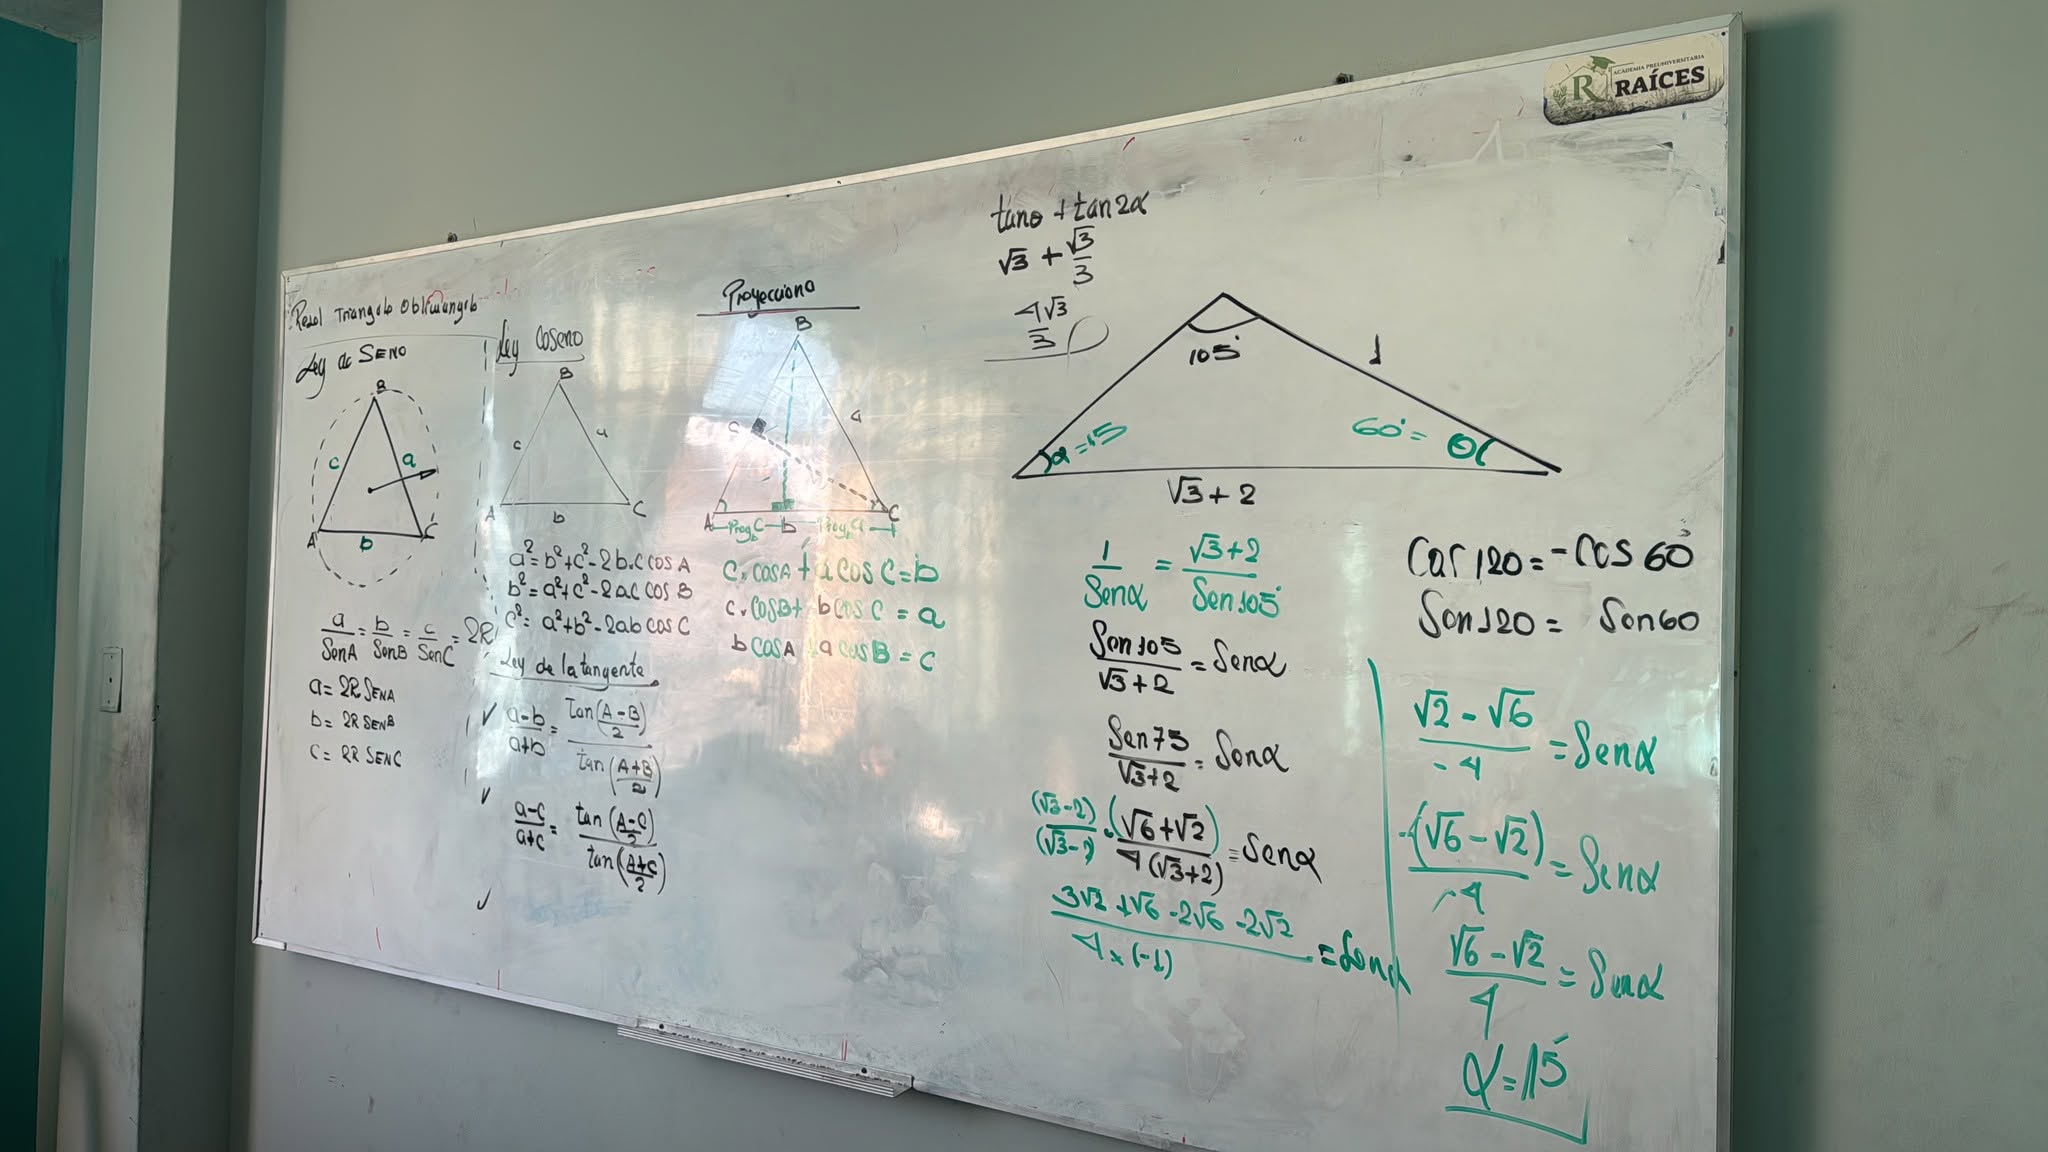 ACADEMIA PREUNIVERSITARIA
R RAÍCES
Resol Triangulo Oblicuangulo
Ley de SENO
B
c
a
A
b
C
a/SenA = b/SenB = c/SenC = 2R
a = 2R SenA
b = 2R SenB
c = 2R SenC
Ley Coseno
B
c
a
A
b
C
a² = b² + c² - 2b.c cos A
b² = a² + c² - 2ac cos B
c² = a² + b² - 2ab cos C
Ley de la tangente
✓ (a-b)/(a+b) = tan((A-B)/2) / tan((A+B)/2)
✓
(a-c)/(a+c) = tan((A-C)/2) / tan((A+C)/2)
✓
Proyecciono
B
c
a
A
C
Proy_b c
b
Proy_b a
c.cosA + a cos C = b
c.cosB + b cos C = a
b cosA + a cosB = c
tanθ + tan2α
√3 + √3/3
4√3/3
105°
1
α=15
60° = θ
√3 + 2
1/Senα = (√3+2)/Sen105°
Sen105/(√3+2) = Senα
Sen75/(√3+2) = Senα
(√3-2)/(√3-2) . (√6+√2)/(4(√3+2)) = Senα
(3√2 + √6 - 2√6 - 2√2)/(4×(-1)) = Senα
Cos 120 = -Cos 60°
Sen120 = Sen60
(√2 - √6)/-4 = Senα
-(√6 - √2)/-4 = Senα
(√6 - √2)/4 = Senα
α = 15°